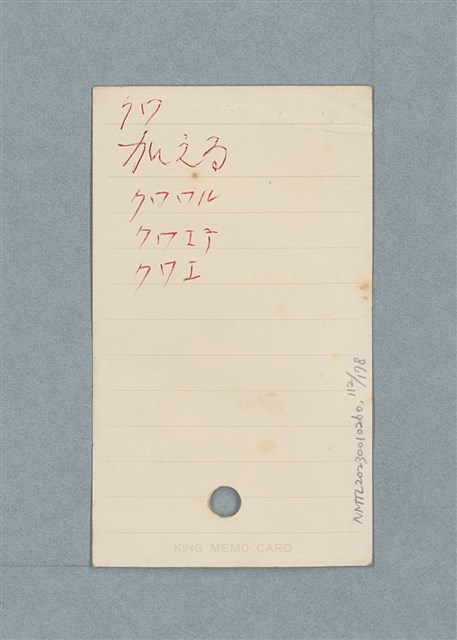 クワ
加える
クワワル
クワエテ
クワエ
KING MEMO CARD
NMTL20230010260, 112/178